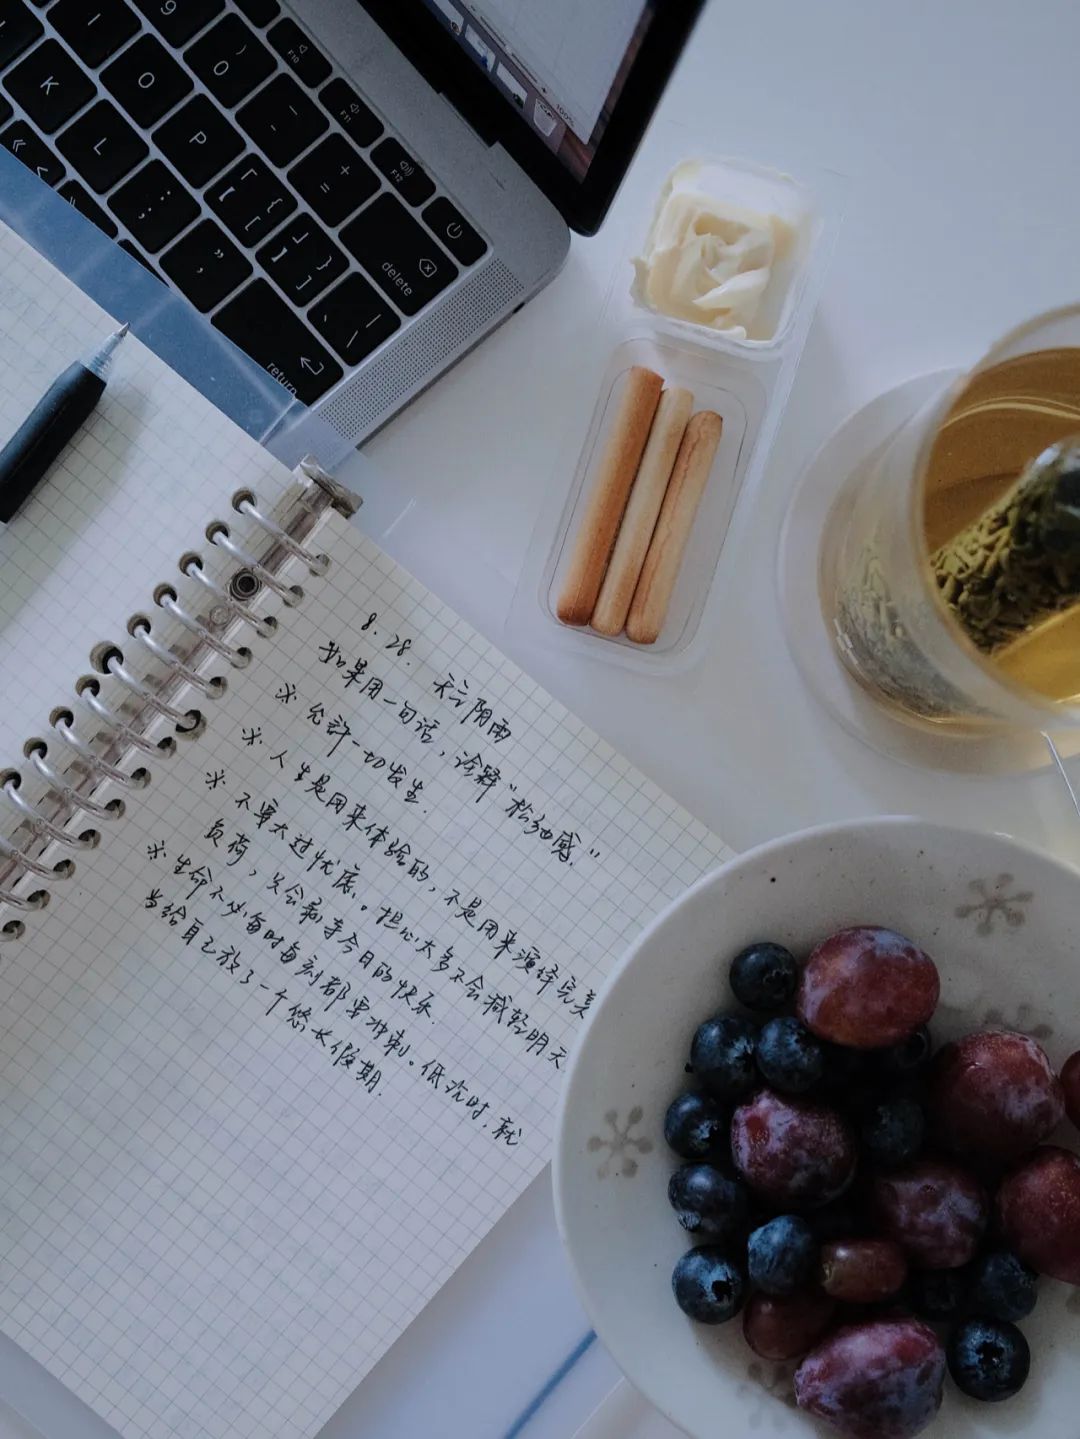 9
I
O
)
0
F10
F11
F12
K
L
P
-
+
=
:
;
"
'
{
[
}
]
|
\
delete
return
100%
8.28. 天亠阴雨
如果用一句话,诠释"松弛感."
※ 允許一切发生.
※ 人生是用来体验的,不是用来演绎完美
※ 不要太过忧虑。担心太多不会减轻明天
负荷,只会剥夺今日的快乐.
※ 生命不必每时每刻都要冲刺。低沉时,就
当给自己放了一个悠长假期.